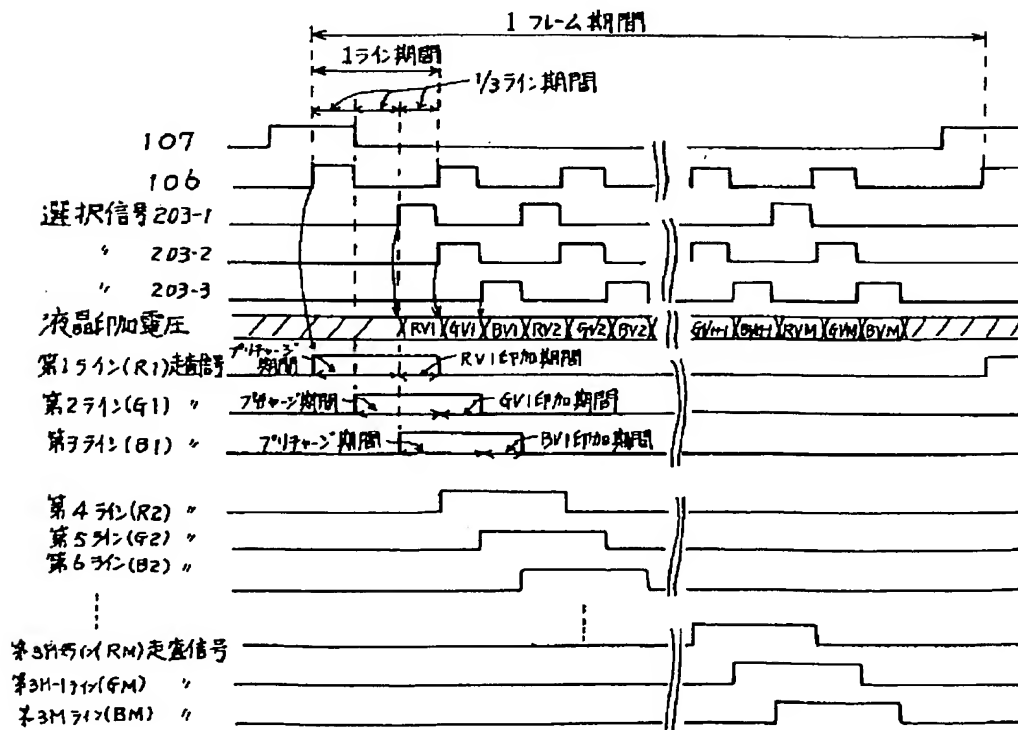 1 フレーム期間
1ライン期間
1/3ライン期間
107
106
選択信号 203-1
〃 203-2
〃 203-3
液晶印加電圧 RV1 GV1 BV1 RV2 GV2 BV2 GVM-1 BVM-1 RVM GVM BVM
第1ライン(R1)走査信号 プリチャージ期間 RV1印加期間
第2ライン(G1) 〃 プリチャージ期間 GV1印加期間
第3ライン(B1) 〃 プリチャージ期間 BV1印加期間
第4ライン(R2) 〃
第5ライン(G2) 〃
第6ライン(B2) 〃
(RM)走査信号
第3M-1ライン(GM) 〃
第3Mライン(BM) 〃